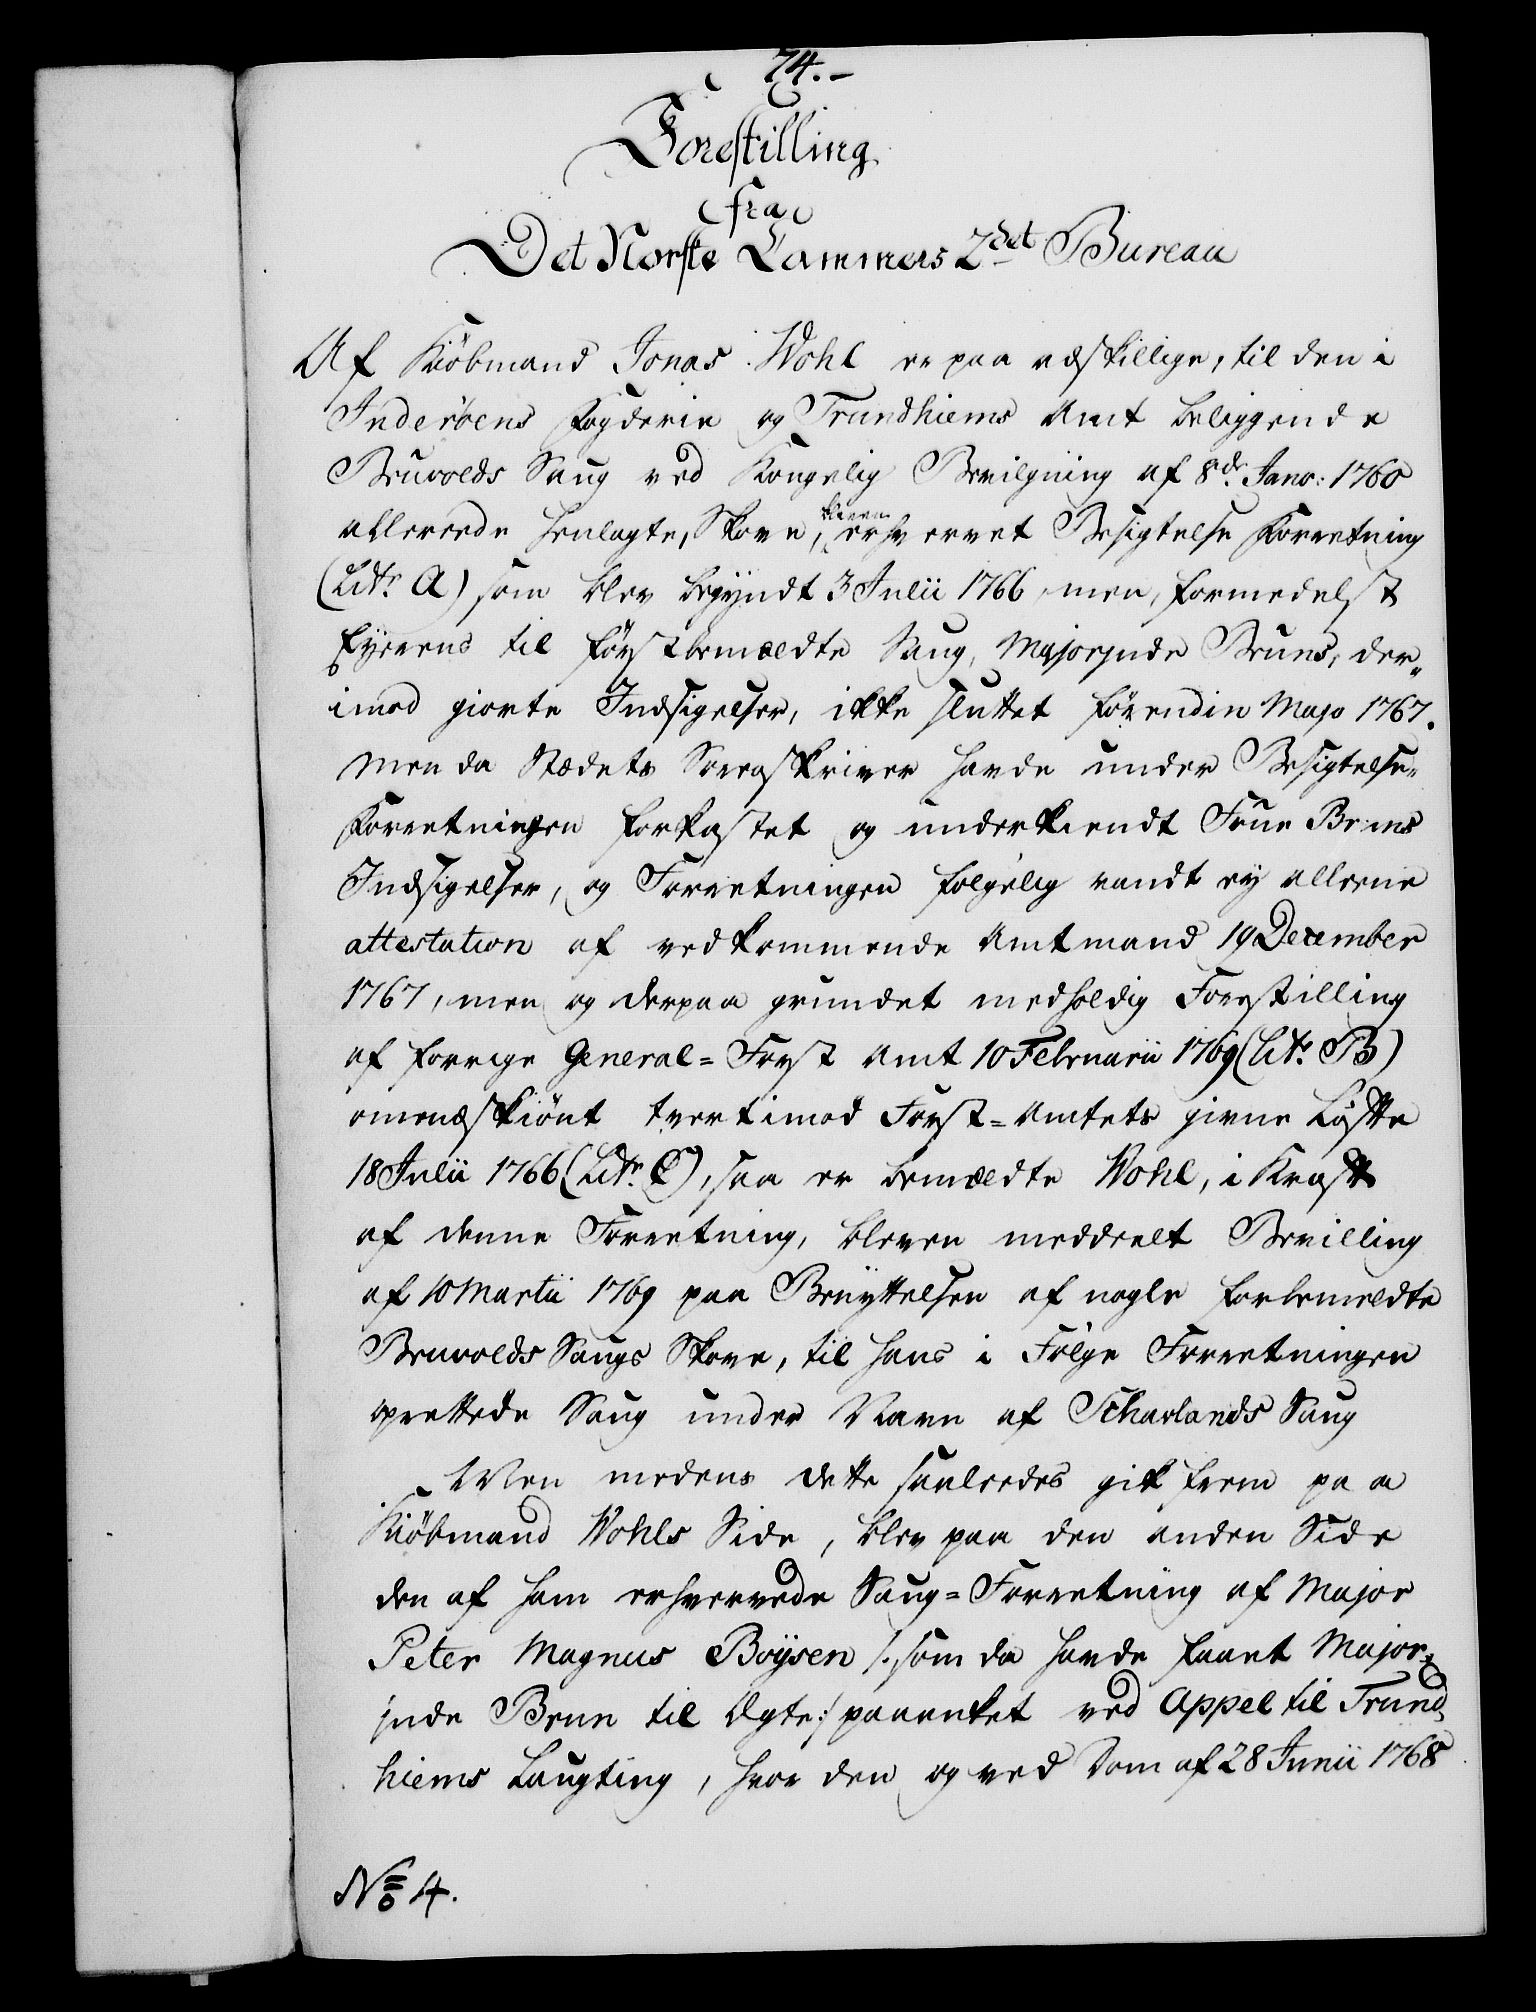 74.-
Forestilling
fra
Det Norske Cammers 2det Bureau
Af Kiöbmand Jonas Wohl er paa adskillige, til den i
Inderöens Fogderie og Trundhiems Amt beliggende
Bruvolds Saug ved Kongelig Bevilgning af 8de Janv: 1760
allereede henlagte, Skove, bleven erhvervet Besigtelse Forretning
(Litr. A) som blev begyndt 3 Julii 1766, men, formedelst
Eyerens til förstbemældte Saug, Majorjnde Bruns, der„
imod giorte Indsigelser, ikke sluttet förend in Majo 1767.
Men da Stædets Sorenskriver havde under Besigtelse-
Forretningen forkastet og underkiendt Frue Bruns
Indsigelser, og Forretningen fölgelig vandt ey alleene
attestation af vedkommende Amtmand 19 December
1767, men og derpaa grundet medholdig Forestilling
af forrige General-Forst Amt 10 Februarii 1769 (Litr. B)
omendskiönt tvertimod Forst-Amtets givne Löfte
18 Julii 1766 (Litr. C), saa er bemældte Wohl, i Kraft
af denne Forretning, bleven meddeelt Bevilling
af 10 Martii 1769 paa Benyttelsen af nogle forbemeldte
Bruvolds Saugs Skove, til hans i Fölge Forretningen
oprettede Saug under Navn af Scharlands Saug
Men medens dette saaledes gik frem paa
Kiöbmand Wohls Side, blev paa den anden Side
den af ham erhvervede Saug-Forretning af Major
Peter Magnus Boysen /: som da havde faaet Major-
jnde Brun til Ægte :/ paaanket ved Appel til Trund-
hiems Laugting, hvor den og ved Dom af 28 Junii 1768
No 4.